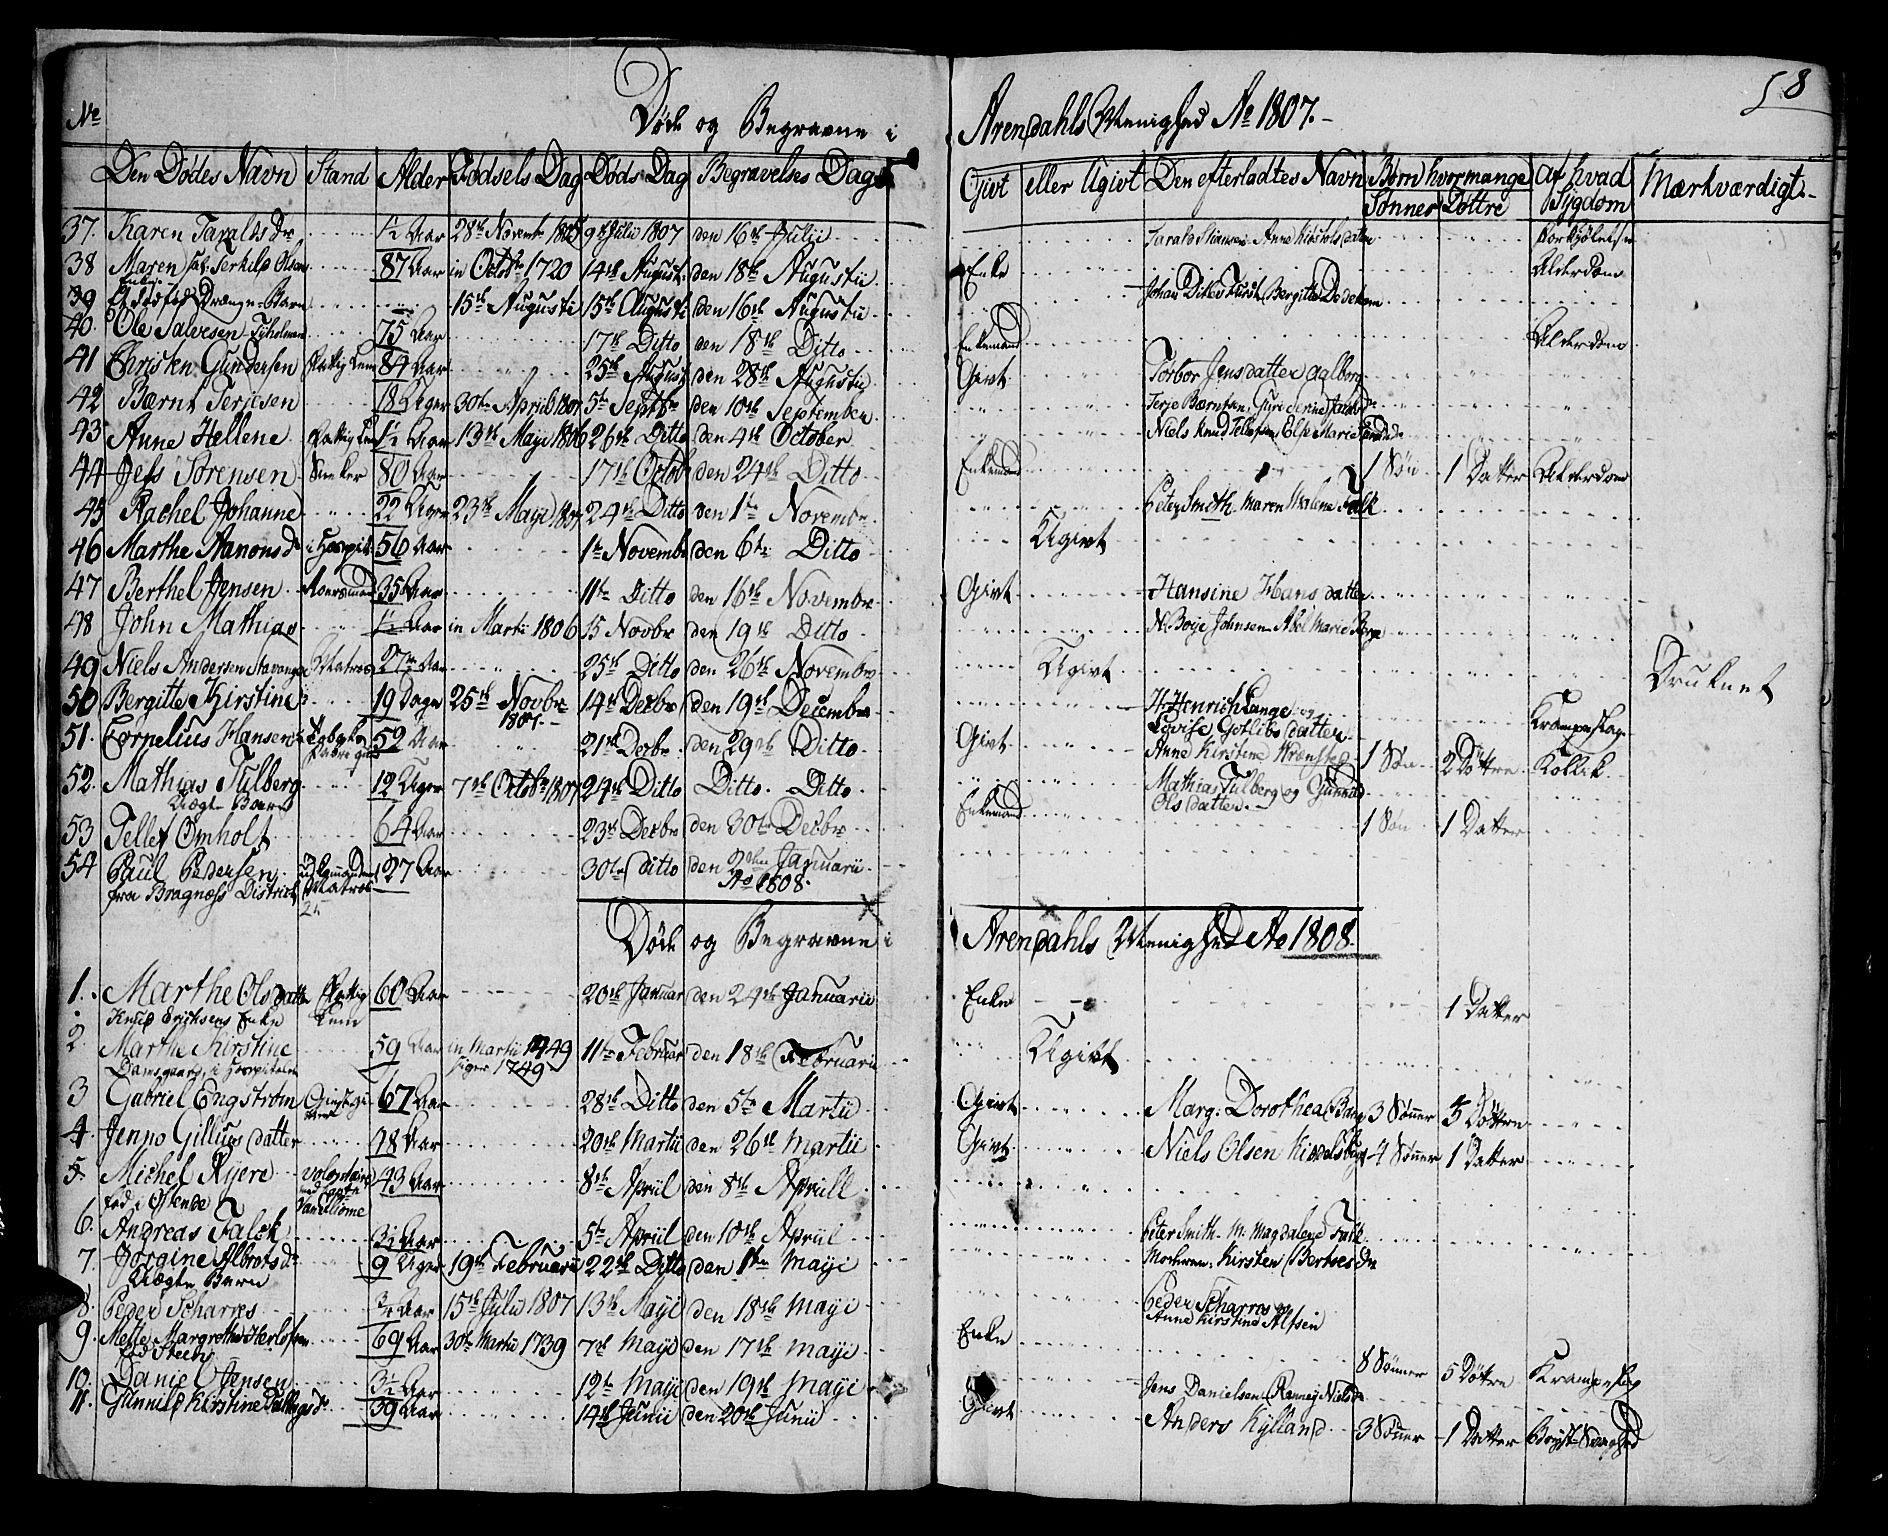 58
No Døde og Begravne i Arendahls Menighed Ao 1807.
Den Dødes Navn Stand Alder Fødsels Dag Døds Dag Begravelses Dag Givt eller Ugivt Den efterladtes Navn Børn hvormange af hvad Sygdom Mærkværdigt.
Sønner Døttre
37. Karen Taralds Dr 1½ Aar 28de Novemb 1805 9de Julii 1807 den 16de Julii Anne Forkjølelse
38 Maren sal. Terkild Olsens Enke 87 Aar in Octobr 1720 14de August den 18de Augustii Enke Alderdom
39 Et dødfød Drænge-Barn 15de Augusti 15de Augusti den 16de Augustii Johan Bergitte Dedekam
40. Ole Salvesen Tyholmen 75 Aar 17de Ditto den 18de Ditto Enkemand Alderdom
41 Christen Gundersen Fattig Lem 84 Aar 25de August den 28de Augustii Givt Torbor Jensdatter Aalborg
42 Bærnt Terjesen 18 Uger 30te April 1807 5te Septbr den 10de September Terje Berntsen
43 Anne Hellene Fattig Lem 1½ Aar 13de Maji 1806 26de Ditto den 4de October Niels Knud Tellefsen Else Marie
44 Jens Sørensen Sneker 80 Aar 17de Octob den 24de Ditto Enkemand 1 Søn 1 Datter Alderdom
45 Rachel Johanne 22 Uger 23de Maji 1807 24de Ditto den 1te Novembr Peter Smith Maren Malene Falk
46 Marthe Aanonsdr i Hospit. 56 Aar 1te Novembr den 6te Ditto Ugivt
47 Berthel Jensen 35 Aar 11te Ditto den 16de Novembr Givt Hansine Hansdatter
48 John Mathias 1½ Aar in Martii 1806 15 Novbr den 19de Ditto N. Boije Johnsen Abel Marie
49 Niels Andersen Stavanger Matros 27 Aar 25de Ditto den 26de Novembr Ugivt Druknet
50 Bergitte Kirstine 19 Dage 25de Novbr 1807. 14de Decbr den 19de Decembr H. Henrich Lange og Lovise Gotlibsdatter Krampeslag
51. Cornelius Hansen Tobaks Fabriqeur 52 Aar 21de Decbr den 29de Ditto Givt Anne Kirstine 1 Søn 2 Døttre Kollik
52. Mathias Tulberg Uægte Barn 12 Uger 7de Octobr 1807 24de Ditto Ditto. Ditto Mathias Tulberg og Gunnild Olsdatter
53 Tellef Omholt 64 Aar 23de Decbr den 30te Decbr Enkemand 1 Søn 1 Datter
54 Paul Pedersen fra Bragnæss District Matros 27 Aar 30te Ditto den 2den Januarii Ao 1808.
Døde og Begravne i Arendahls Menighed Ao 1808.
1. Marthe Olsdatter Knud Ericksens Enke Fattig Lem 60 Aar 20de Januar den 24de Januarii Enke 1 Datter
2. Marthe Kirstine Damsgaard, i Hospitalet 59 Aar in Martii 1749 siger 1749 11te Februar den 18de Februarii Ugivt
3 Gabriel Engstrøm 67 Aar 28de Ditto den 5te Martii Givt Marg: Dorothea Bang 3 Sønner 5 Døttre
4. Jenno Gilliusdatter 78 Aar 20de Martii den 26de Martii Givt Niels Olsen 4 Sønner 1 Datter
5. Michel Ryere fød i Ostende Volontaire 43 Aar 8de Apriil den 8de Apriill
6. Andreas Falck 3½ Aar 5te Apriil den 10de Apriil Peter Smith M. Magdalene Falk
7. Jørgine Albretsdr Uægte Barn 9 Uger 19de Februarii 22de Ditto den 1te Maji Moderen: Kirsten Berthesdr
8. Peder Scharnes ¾ Aar 15de Julii 1807 13de Maji den 18de Maji Peder Scharnes og Anne Kirstine Alfsen
9. Mette Margrethe Herlofsen fød Steen 69 Aar 30te Martii 1739 7de Maji den 17de Maji Enke 8 Sønner 5 Døttre Krampeslag
10. Daniel Jensen 3½ Aar 12te Maji den 19de Maji Jens Danielsen Ranney Nielsdr
11. Gunnild Kirstine 39 Aar 14de Junii den 20de Junii Givt Anders Kylland 3 Sønner 1 Datter Bryst-Svaghed